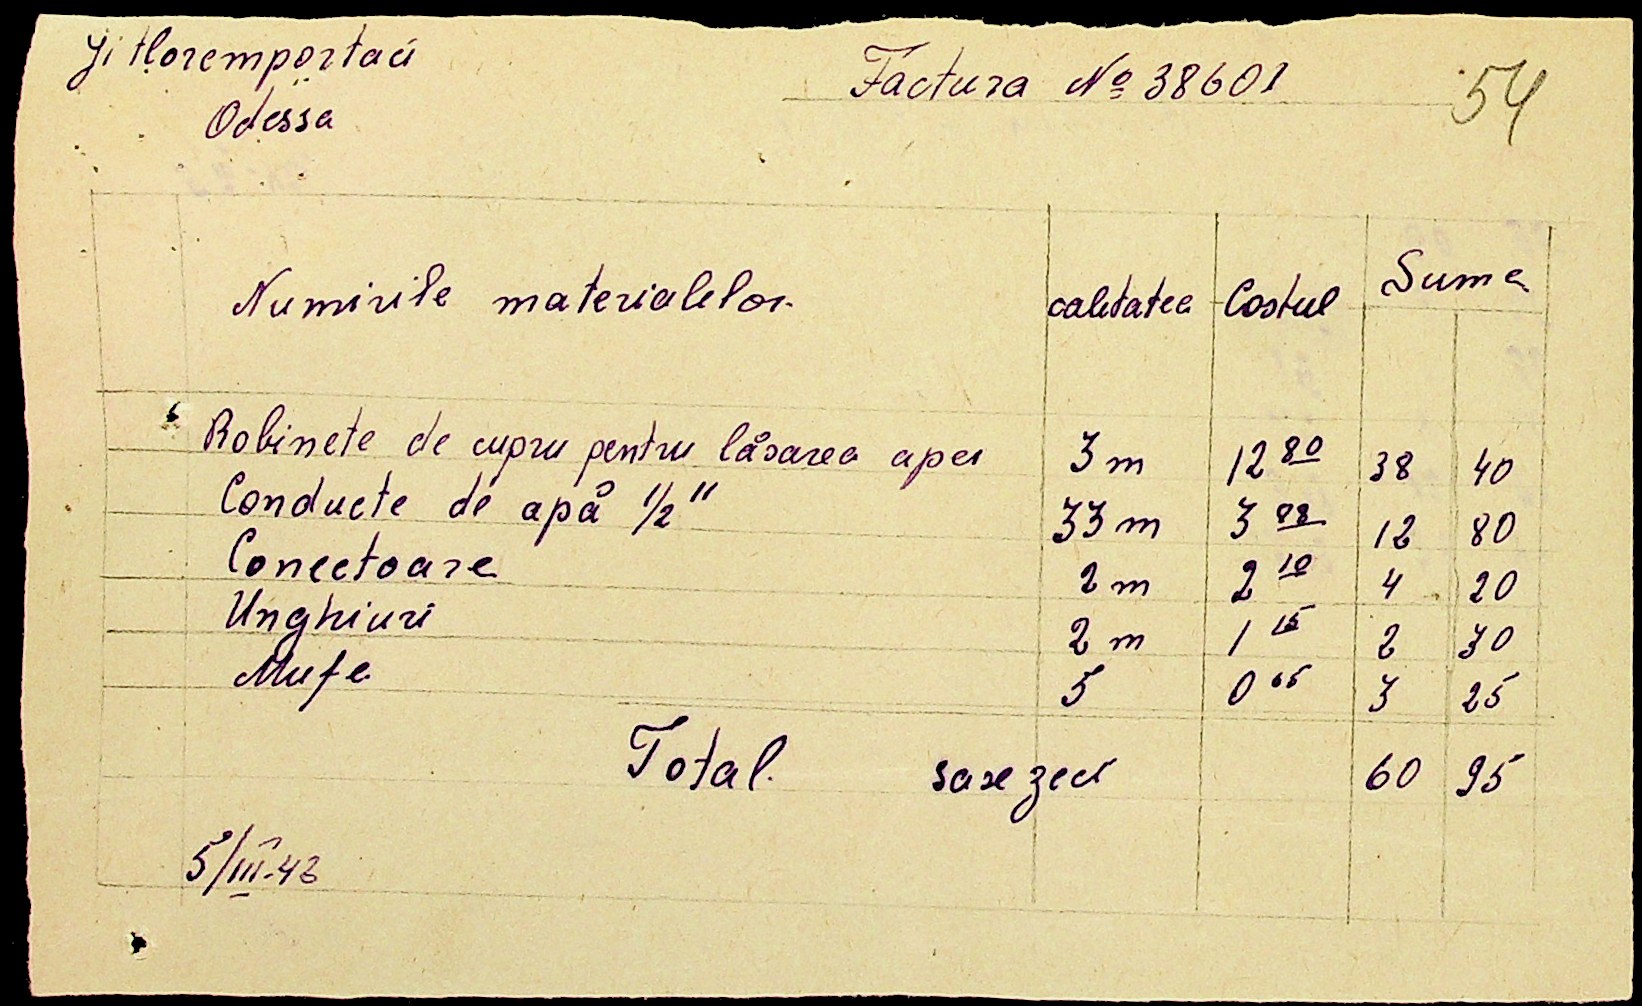 Ji tloremportaci
Factura № 38601
54
Odessa
Numirile materialelor
calitatea
Costul
Suma
Robinete de cupru pentru låsarea apei 3 m 12 80 38 40
Conducte de apå 1/2" 33 m 3 88 12 80
Conectoare 2 m 2 10 4 20
Unghiuri 2 m 1 15 2 30
Mufe 5 0 65 3 25
Total sase zeci 60 95
5/III-43